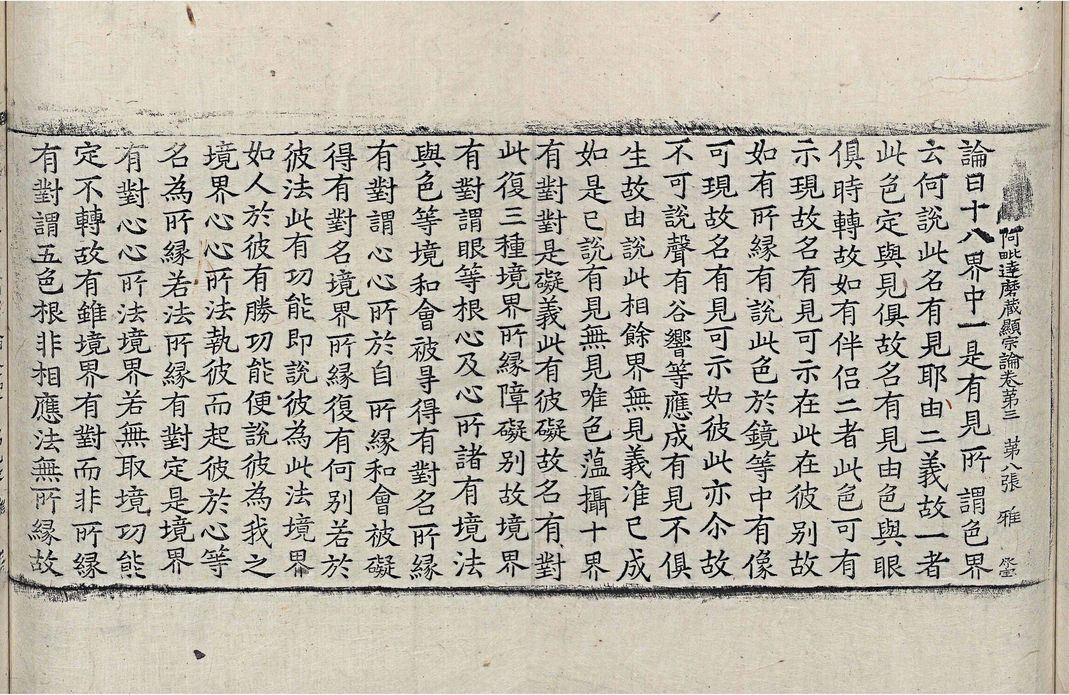 阿毗達磨藏顯宗論卷第三　第八張　雅
論曰十八界中一是有見所謂色界
云何說此名有見耶由二義故一者
此色定與見俱故名有見由色與眼
俱時轉故如有伴侣二者此色可有
示現故名有見可示在此在彼別故
如有所縁有說此色於鏡等中有像
可現故名有見可示如彼此亦尒故
不可說聲有谷響等應成有見不俱
生故由說此相餘界無見義准已成
如是已說有見無見唯色蕰攝十界
有對對是礙義此有彼礙故名有對
此復三種境界所縁障礙別故境界
有對謂眼等根心及心所諸有境法
與色等境和會被㝵得有對名所縁
有對謂心心所於自所縁和會被礙
得有對名境界所縁復有何別若於
彼法此有功能即說彼為此法境界
如人於彼有勝功能便說彼為我之
境界心心所法執彼而起彼於心等
名為所縁若法所縁有對定是境界
有對心心所法境界若無取境功能
定不轉故有雖境界有對而非所縁
有對謂五色根非相應法無所縁故